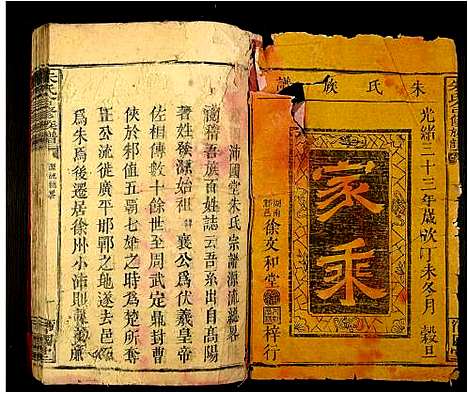 朱氏族譜
光緒三十三年歲次丁未冬月 穀旦
家乘
湖南
徐文和堂梓行
沛國堂朱氏宗譜源流總畧
嘗稽吾族百姓誌云吾系出自高陽
著姓發源始祖 襄公為伏羲皇帝
佐相傳數十餘世至周武定鼎封曹
俠於邾值五霸七雄之時為楚所奪
公流徙廣平邯鄲之地遂去邑
為朱焉後遷居徐州小沛則